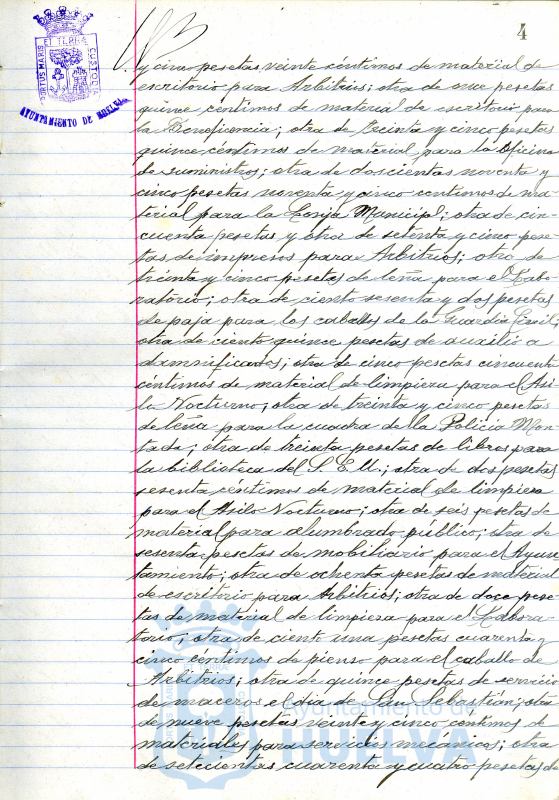 4
PORTUS MARIS ET TERRÆ CUSTODIA
AYUNTAMIENTO DE HUELVA
y cinco pesetas veinte céntimos de material de
escritorio para Arbitrios; otra de once pesetas
quince céntimos de material de escritorio para
la Beneficencia; otra de treinta y cinco pesetas
quince céntimos de material para la Oficina
de suministros; otra de doscientas noventa y
cinco pesetas noventa y cinco centimos de ma
terial para la Lonja Municipal; otra de cin
cuenta pesetas y otra de setenta y cinco pese
tas de impresos para Arbitrios; otra de
treinta y cinco pesetas de leña para el Labo
ratorio; otra de ciento sesenta y dos pesetas
de paja para los caballos de la Guardia Civil;
otra de ciento quince pesetas de auxilio a
damnificados; otra de cinco pesetas cincuenta
céntimos de material de limpieza para el Asi
lo Nocturno; otra de treinta y cinco pesetas
de leña para la cuadra de la Policia Mon
tada; otra de treinta pesetas de libros para
la biblioteca del S.E.U.; otra de dos pesetas
sesenta céntimos de material de limpieza
para el Asilo Nocturno; otra de seis pesetas de
material para alumbrado público; otra de
sesenta pesetas de mobiliario para el Ayun
tamiento; otra de ochenta pesetas de material
de escritorio para Arbitrios; otra de doce pese
tas de material de limpieza para el Labora
torio; otra de ciento una pesetas cuarenta y
cinco céntimos de pienso para el caballo de
Arbitrios; otra de quince pesetas de servicio
de maceros el dia de San Sebastián; otra
de nueve pesetas veinte y cinco centimos de
materiales para servicios mecánicos; otra
de setecientas cuarenta y cuatro pesetas de
Ayuntamiento de
HUELVA